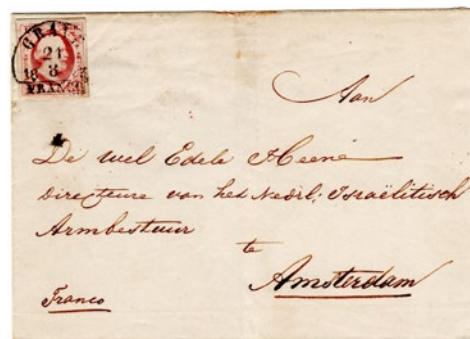 GRAVE
21
8
FRANCO
Aan
De wel Edele Heeren
Directeuren van het Nedrl: Israëlitisch
Armbestuur
te
Amsterdam
Franco